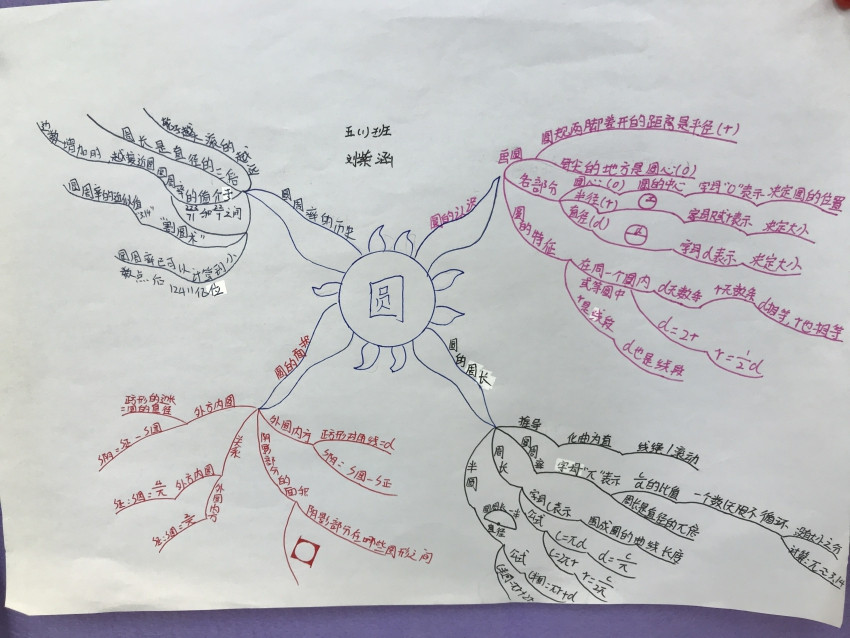 五(1)班
刘紫涵
圆
圆周率的历史
周长是直径的三倍
圆周率的值介于
223/71和22/7之间
边数增加时,越接近圆
圆周率的近似值
"3.14"
"割圆术"
圆周率已可以计算到小
数点后12411亿位
圆的认识
画圆
圆规两脚叉开的距离是半径(r)
针尖的地方是圆心(O)
各部分
圆心(O)
圆的中心
字母"O"表示
决定圆的位置
半径(r)
字母r表示
决定大小
直径(d)
字母d表示
决定大小
圆的特征
在同一个圆内
或等圆中
d无数条
r无数条
d相等,r也相等
d=2r
r=1/2d
r是线段
d也是线段
圆的面积
外方内圆
正方形的边长
=圆的直径
S阴=S正-S圆
外圆内方
正方形对角线=d
S阴=S圆-S正
关系
外方内圆
S正:S圆=4/π
外圆内方
阴影部分的面积
阴影部分在哪些图形之间
圆的周长
推导
化曲为直
线绕/滚动
圆周率
字母"π"表示
c/d的比值
一个无限不循环
没有大小之分
计算:π≈3.14
周长是直径的π倍
周长
字母C表示
围成圆的曲线长度
公式
C=πd
d=c/π
C=2πr
r=c/2π
半圆
直径
公式
C半圆=πr+d
C半圆=πr+2r